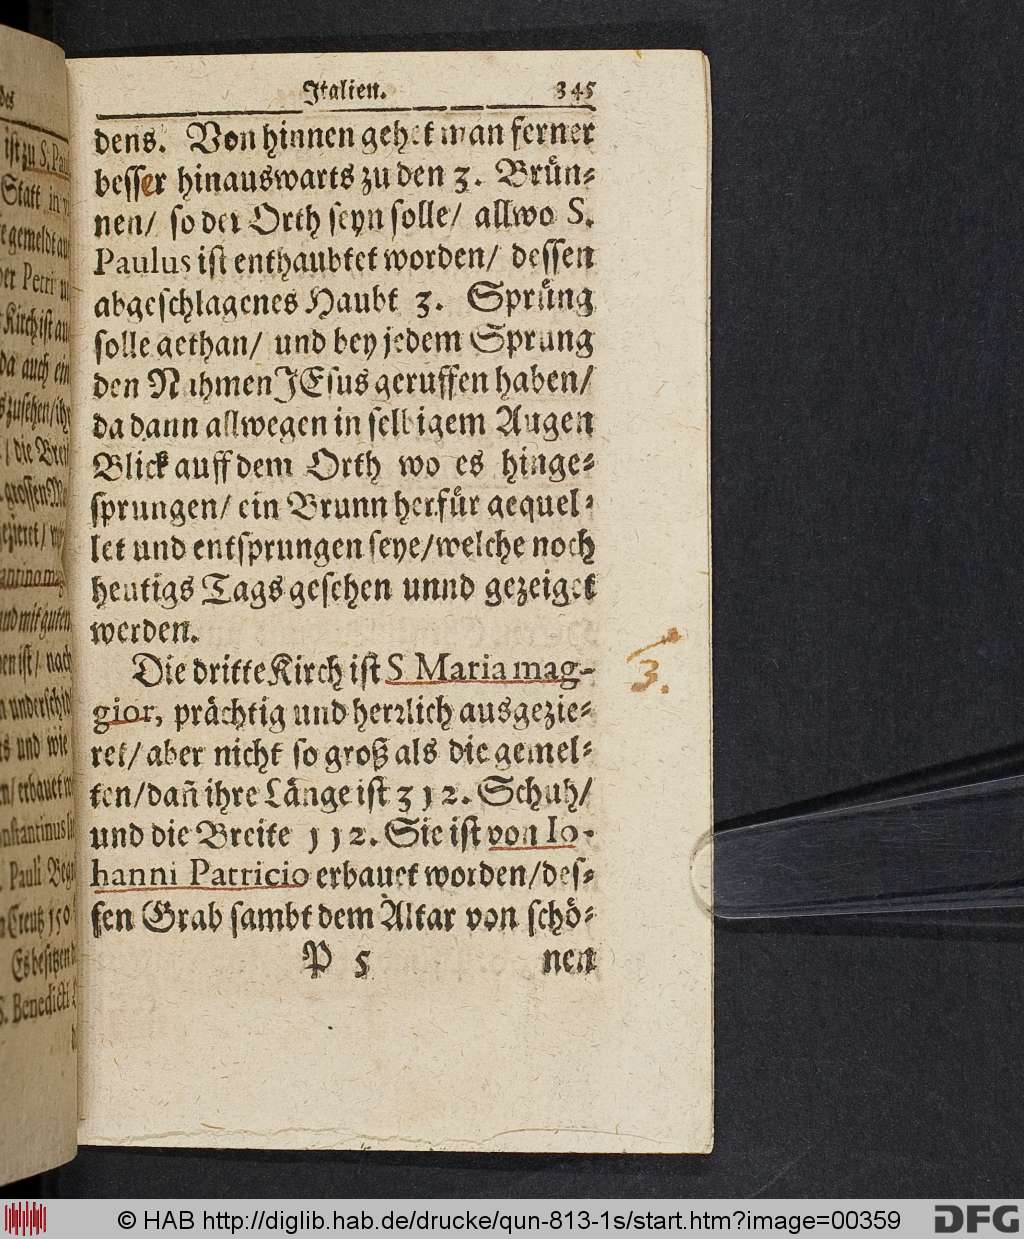 Italien. 345
dens. Von hinnen gehet man ferner
besser hinauswarts zu den 3. Brün-
nen/ so der Orth seyn solle/ allwo S.
Paulus ist enthaubtet worden/ dessen
abgeschlagenes Haubt 3. Sprüng
solle gethan/ und bey jedem Sprung
den Nahmen JEsus geruffen haben/
da dann allwegen in selbigem Augen
Blick auff dem Orth wo es hinge-
sprungen/ ein Brunn herfür gequel-
let und entsprungen seye/welche noch
heutigs Tags gesehen unnd gezeiget
werden.
Die dritte Kirch ist S Maria mag-
gior, prächtig und herrlich ausgezie-
ret/ aber nicht so groß als die gemel-
ten/dañ ihre Länge ist 312. Schuh/
und die Breite 112. Sie ist von Io-
hanni Patricio erbauet worden/des-
sen Grab sambt dem Altar von schö-
P 5 nen
3.
des
ist zu S. Paul
Statt in
gemeldt
Petri
Kirch ist
da auch ein
zusehen/
die
grossen
und mit guten
ist/ nach
und wie
erbauet
Pauli
Creutz 150
Es besitzen
S. Benedicti
© HAB http://diglib.hab.de/drucke/qun-813-1s/start.htm?image=00359
DFG